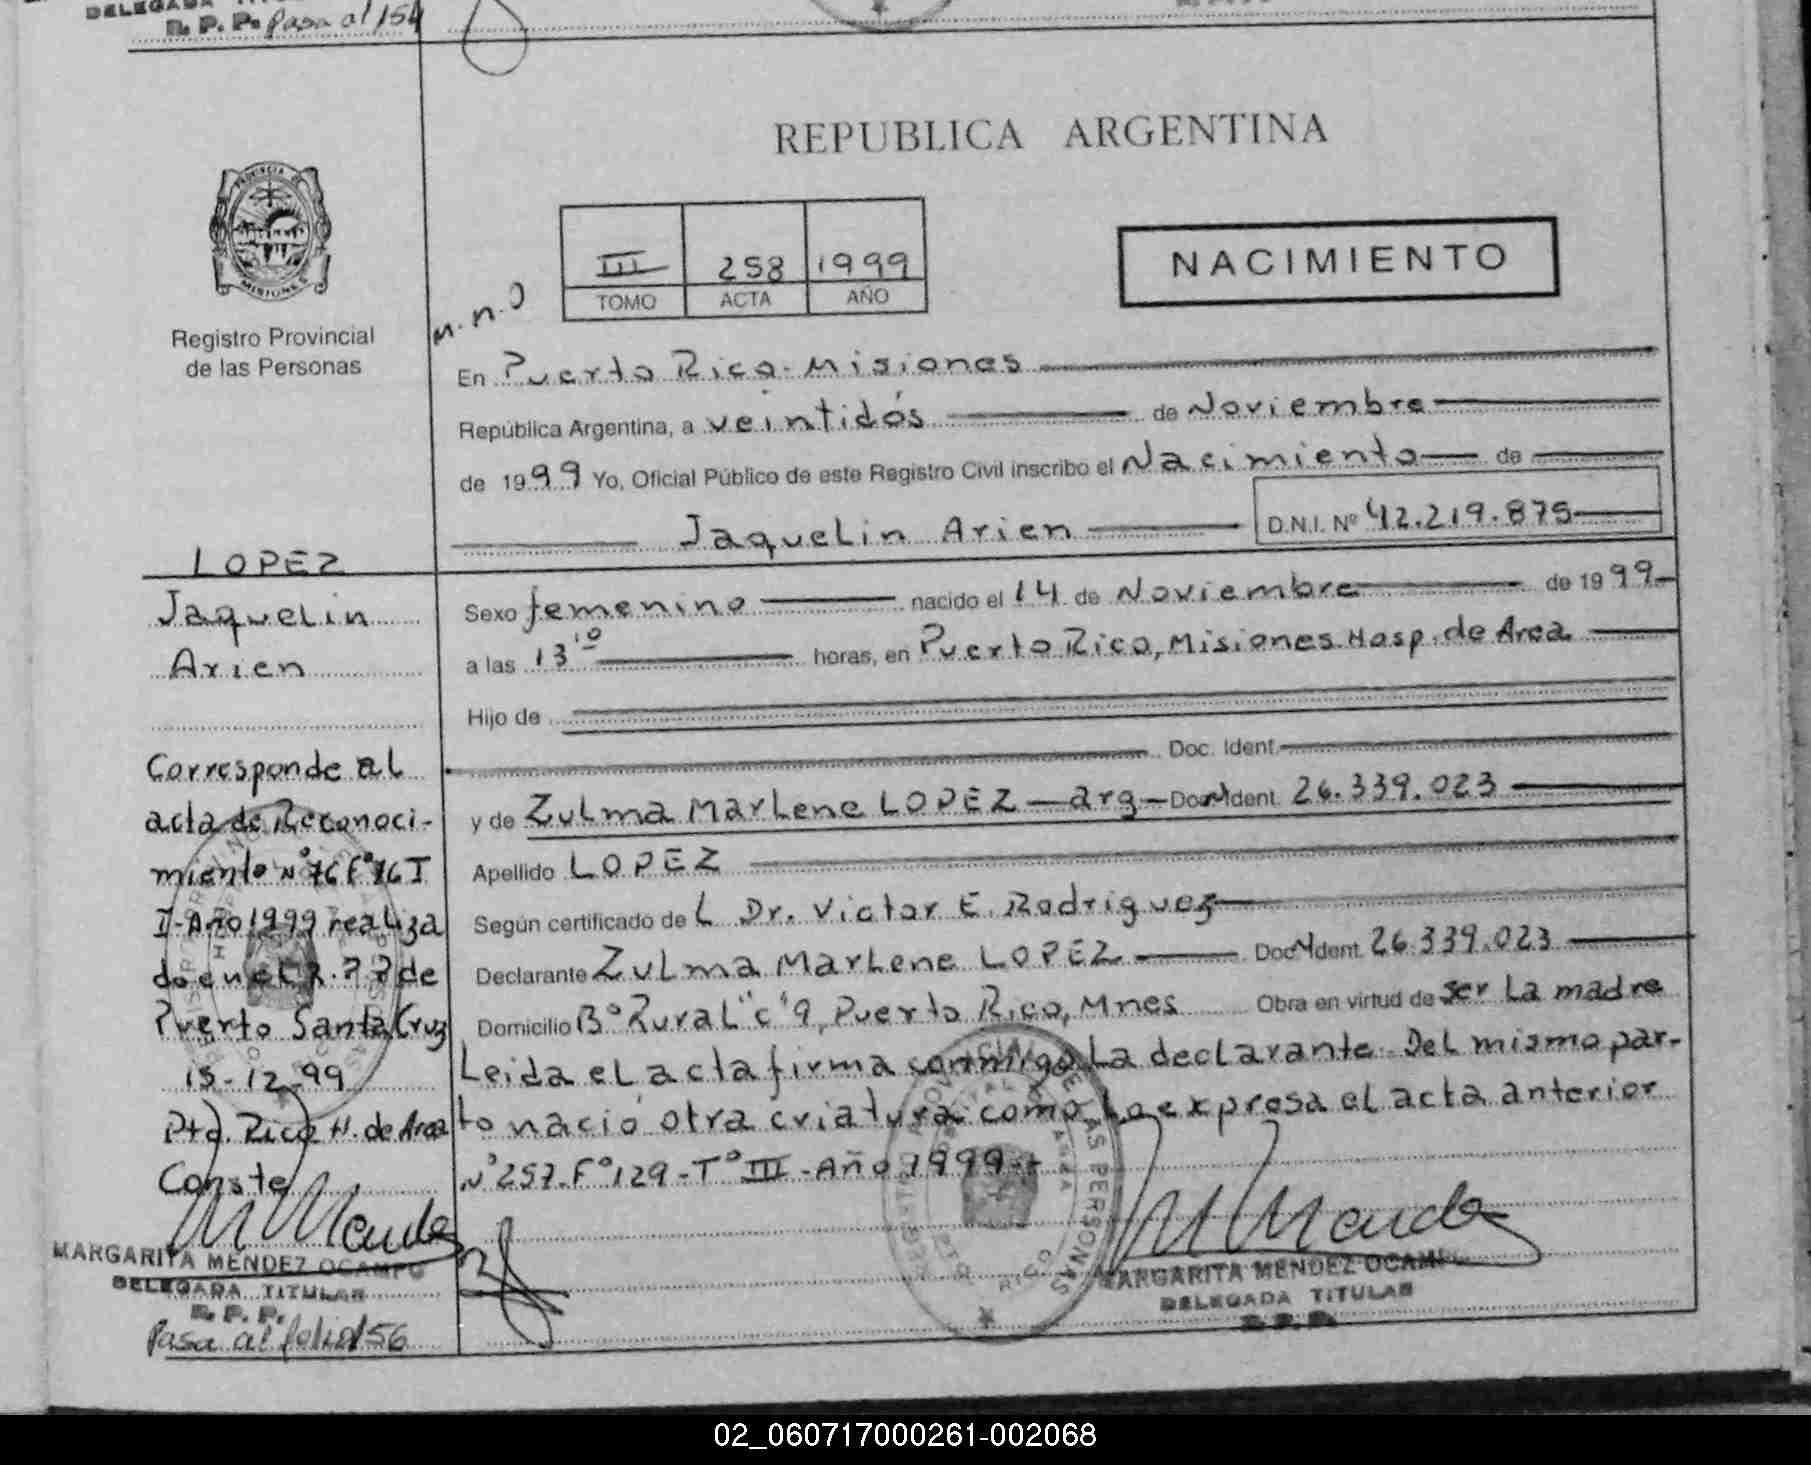 DELEGADA
R. P. P. Pasa al 154
REPUBLICA ARGENTINA
PROVINCIA DE
MISIONES
Registro Provincial
de las Personas
III 258 1999
TOMO ACTA AÑO
NACIMIENTO
m.n.o
En Puerto Rico - Misiones
República Argentina, a veintidós de Noviembre
de 1999 Yo, Oficial Público de este Registro Civil inscribo el Nacimiento de
Jaquelin Arien D.N.I. Nº 42.219.875
LOPEZ
Jaquelin
Arien
Sexo femenino nacido el 14 de Noviembre de 1999
a las 13 10 horas, en Puerto Rico, Misiones Hosp. de Area
Hijo de
Doc. Ident.
y de Zulma Marlene LOPEZ - arg - Doc. Ident. 26.339.023
Apellido LOPEZ
Según certificado de L Dr. Victor E. Rodriguez
Declarante Zulma Marlene LOPEZ Doc. Ident. 26.339.023
Domicilio Bº Rural "c" 9, Puerto Rico, Mnes Obra en virtud de ser La madre
Leida el acta firma conmigo La declarante. Del mismo par-
to nació otra criatura como Lo expresa el acta anterior
Nº 257. Fº 129 - Tº III - Año 1999
Corresponde al
acta de Reconoci-
miento Nº 76 Fº 76 T
I - Año 1999 realiza
do en el R. P. P de
Puerto Santa Cruz
15-12-99
Pto. Rico H. de Area
Conste
M Mendez
MARGARITA MENDEZ OCAMPO
DELEGADA TITULAR
R. P. P.
Pasa al folio 156
M Mendez
MARGARITA MENDEZ OCAMPO
DELEGADA TITULAR
R. P. P.
02_060717000261-002068